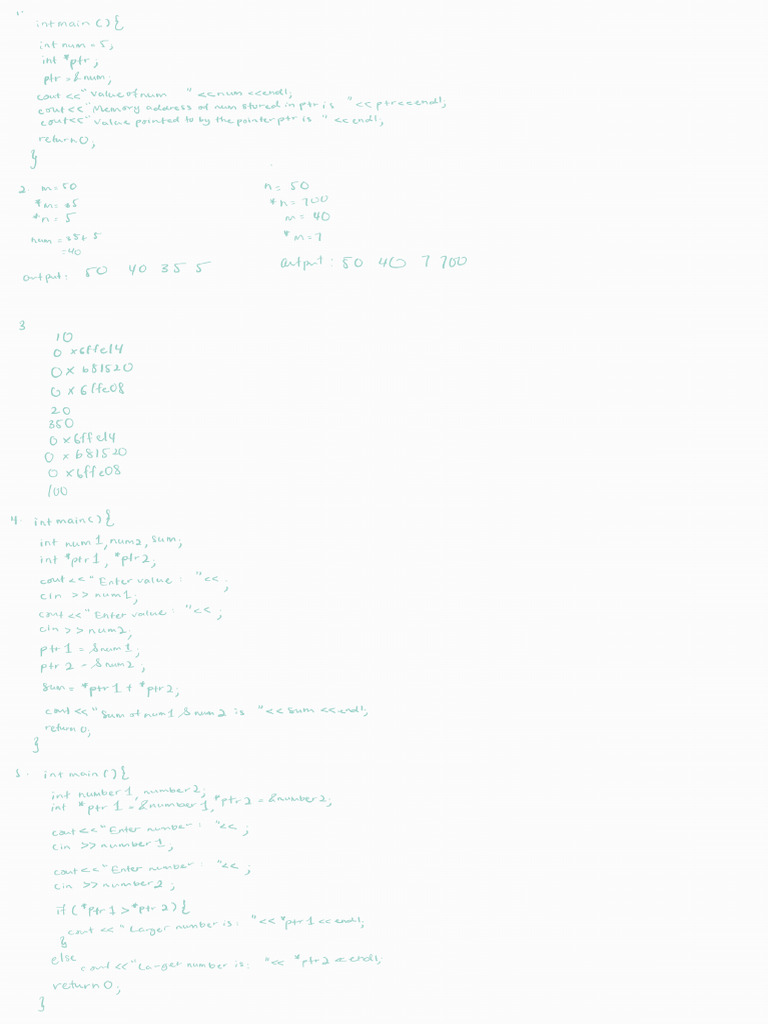 1.
int main () {
int num = 5;
int *ptr;
ptr = &num;
cout << "Value of num " << num << endl;
cout << "Memory address of num stored in ptr is " << ptr << endl;
cout << "Value pointed to by the pointer ptr is " << endl;
return 0;
}
2. m = 50
*m = 35
*n = 5
num = 35 + 5
= 40
output: 50 40 35 5
n = 50
*n = 700
m = 40
*m = 7
output: 50 40 7 700
3
10
0x6ffe14
0x681520
0x6ffe08
20
350
0x6ffe14
0x681520
0x6ffe08
100
4. int main() {
int num1, num2, sum;
int *ptr1, *ptr2;
cout << "Enter value : " << ;
cin >> num1;
cout << "Enter value : " << ;
cin >> num2;
ptr1 = &num1;
ptr2 = &num2;
sum = *ptr1 + *ptr2;
cout << "Sum of num1 & num2 is " << sum << endl;
return 0;
}
5. int main () {
int number1, number2;
int *ptr1 = &number1, *ptr2 = &number2;
cout << "Enter number : " << ;
cin >> number1;
cout << "Enter number : " << ;
cin >> number2;
if (*ptr1 > *ptr2) {
cout << "Larger number is: " << *ptr1 << endl;
}
else
cout << "Larger number is: " << *ptr2 << endl;
return 0;
}